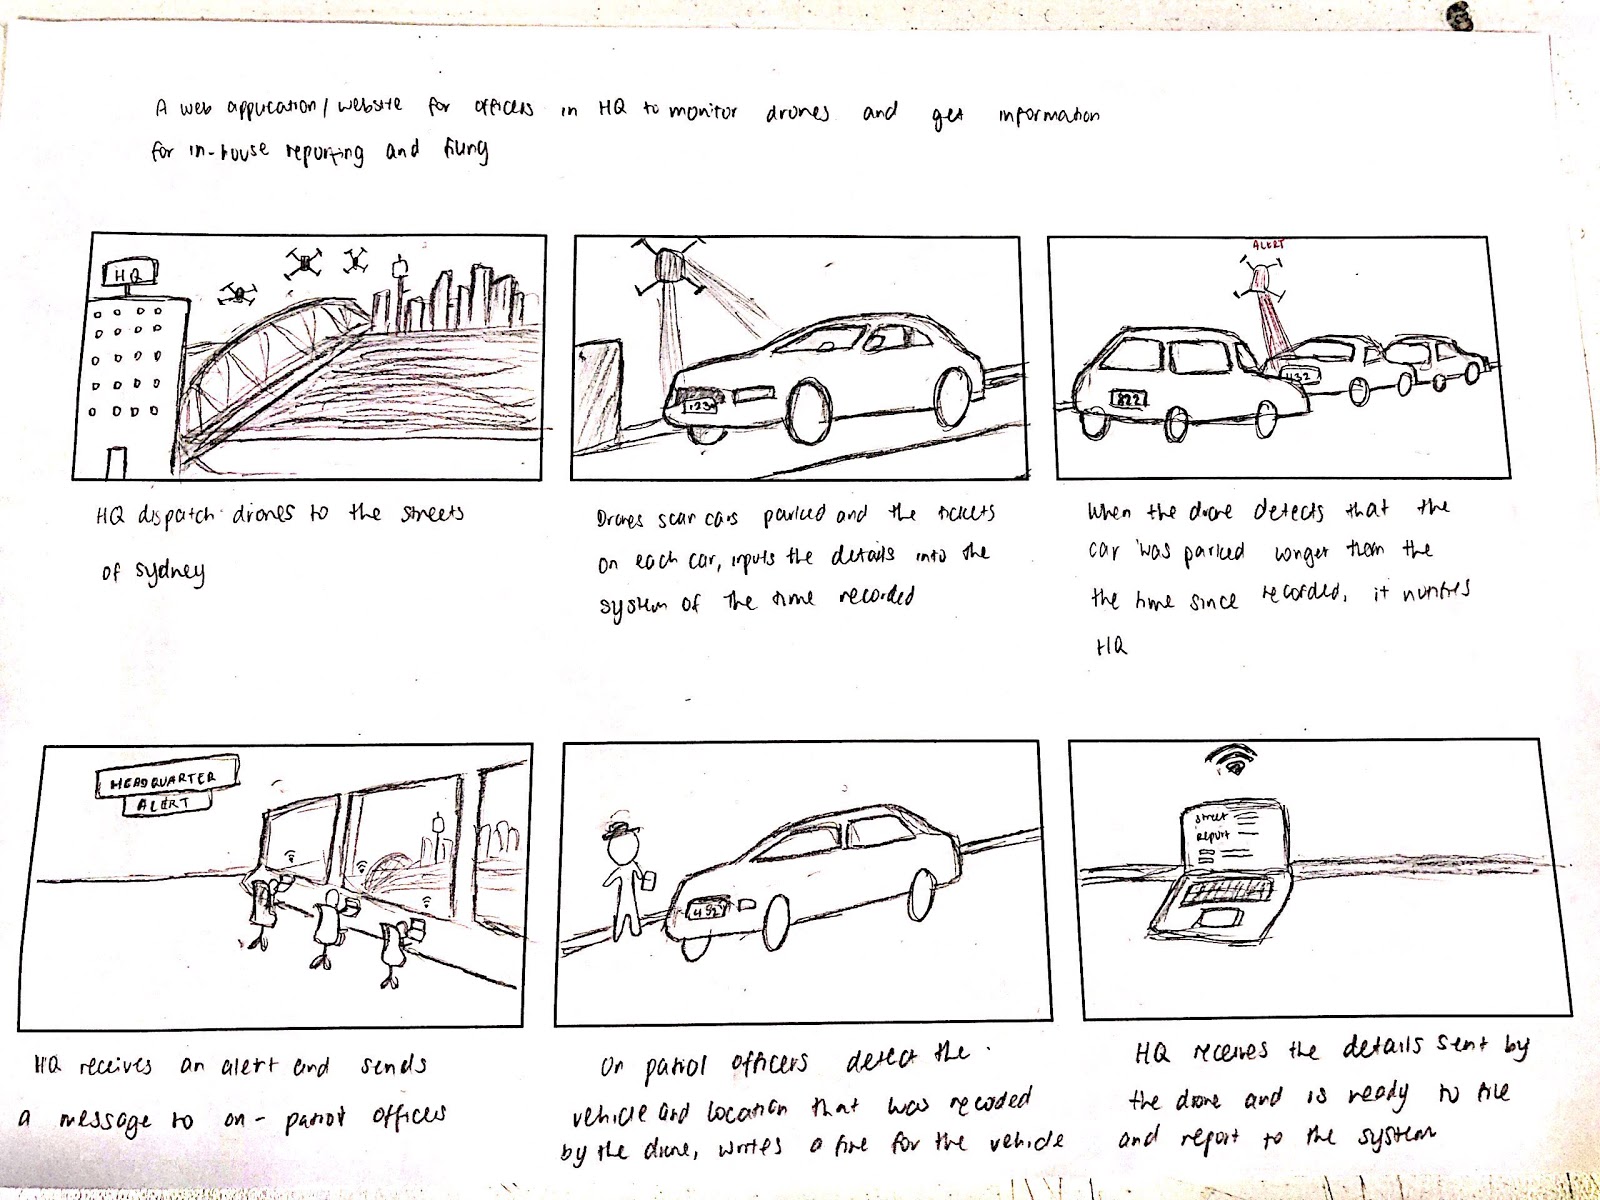 A web application/website for officers in HQ to monitor drones and get information
for in-house reporting and filing
HQ
ALERT
123
822
432
HQ dispatch drones to the streets
of Sydney
Drones scan cars parked and the tickets
on each car, inputs the details into the
system of the time recorded
When the drone detects that the
car was parked longer than the
the time since recorded, it notifies
HQ
HEADQUARTER
ALERT
432
Street
report
HQ receives an alert and sends
a message to on-patrol officers
On patrol officers detect the
vehicle and location that was recoded
by the drone, writes a fine for the vehicle
HQ receives the details sent by
the drone and is ready to file
and report to the system